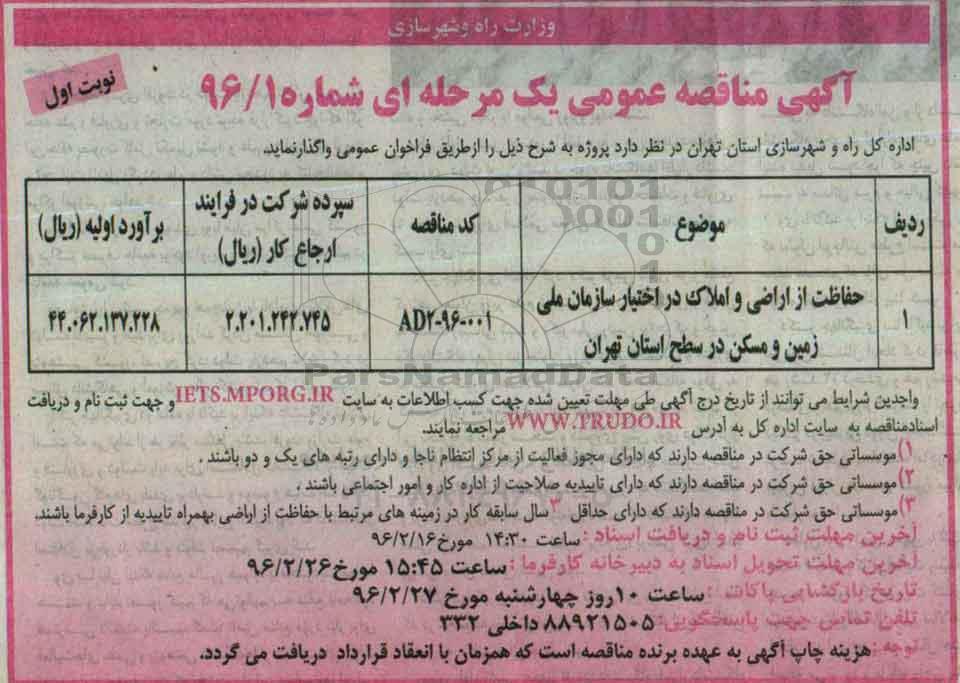 وزارت راه وشهرسازی
نوبت اول
آگهی مناقصه عمومی یک مرحله ای شماره ۹۶/۱
اداره کل راه و شهرسازی استان تهران در نظر دارد پروژه به شرح ذیل را ازطریق فراخوان عمومی واگذارنماید.
ردیف
موضوع
کد مناقصه
سپرده شرکت در فرایند
ارجاع کار (ریال)
برآورد اولیه (ریال)
۱
حفاظت از اراضی و املاک در اختیار سازمان ملی
زمین و مسکن در سطح استان تهران
AD۲-۹۶-۰۰۱
۲.۲۰۱.۲۴۲.۷۴۵
۴۴.۰۶۲.۱۳۷.۲۲۸
ParsNamadData
واجدین شرایط می توانند از تاریخ درج آگهی طی مهلت تعیین شده جهت کسب اطلاعات به سایت IETS.MPORG.IR و جهت ثبت نام و دریافت
اسنادمناقصه به سایت اداره کل به آدرس WWW.TRUDO.IR مراجعه نمایند.
۱) موسساتی حق شرکت در مناقصه دارند که دارای مجوز فعالیت از مرکز انتظام ناجا و دارای رتبه های یک و دو باشند .
۲) موسساتی حق شرکت در مناقصه دارند که دارای تاییدیه صلاحیت از اداره کار و امور اجتماعی باشند .
۳) موسساتی حق شرکت در مناقصه دارند که دارای حداقل ۳ سال سابقه کار در زمینه های مرتبط با حفاظت از اراضی بهمراه تاییدیه از کارفرما باشند.
آخرین مهلت ثبت نام و دریافت اسناد : ساعت ۱۴:۳۰ مورخ ۹۶/۲/۱۶
آخرین مهلت تحویل اسناد به دبیرخانه کارفرما : ساعت ۱۵:۴۵ مورخ ۹۶/۲/۲۶
تاریخ بازگشایی پاکات : ساعت ۱۰ روز چهارشنبه مورخ ۹۶/۲/۲۷
تلفن تماس جهت پاسخگویی: ۸۸۹۲۱۵۰۵ داخلی ۳۳۲
توجه :هزینه چاپ آگهی به عهده برنده مناقصه است که همزمان با انعقاد قرارداد دریافت می گردد.